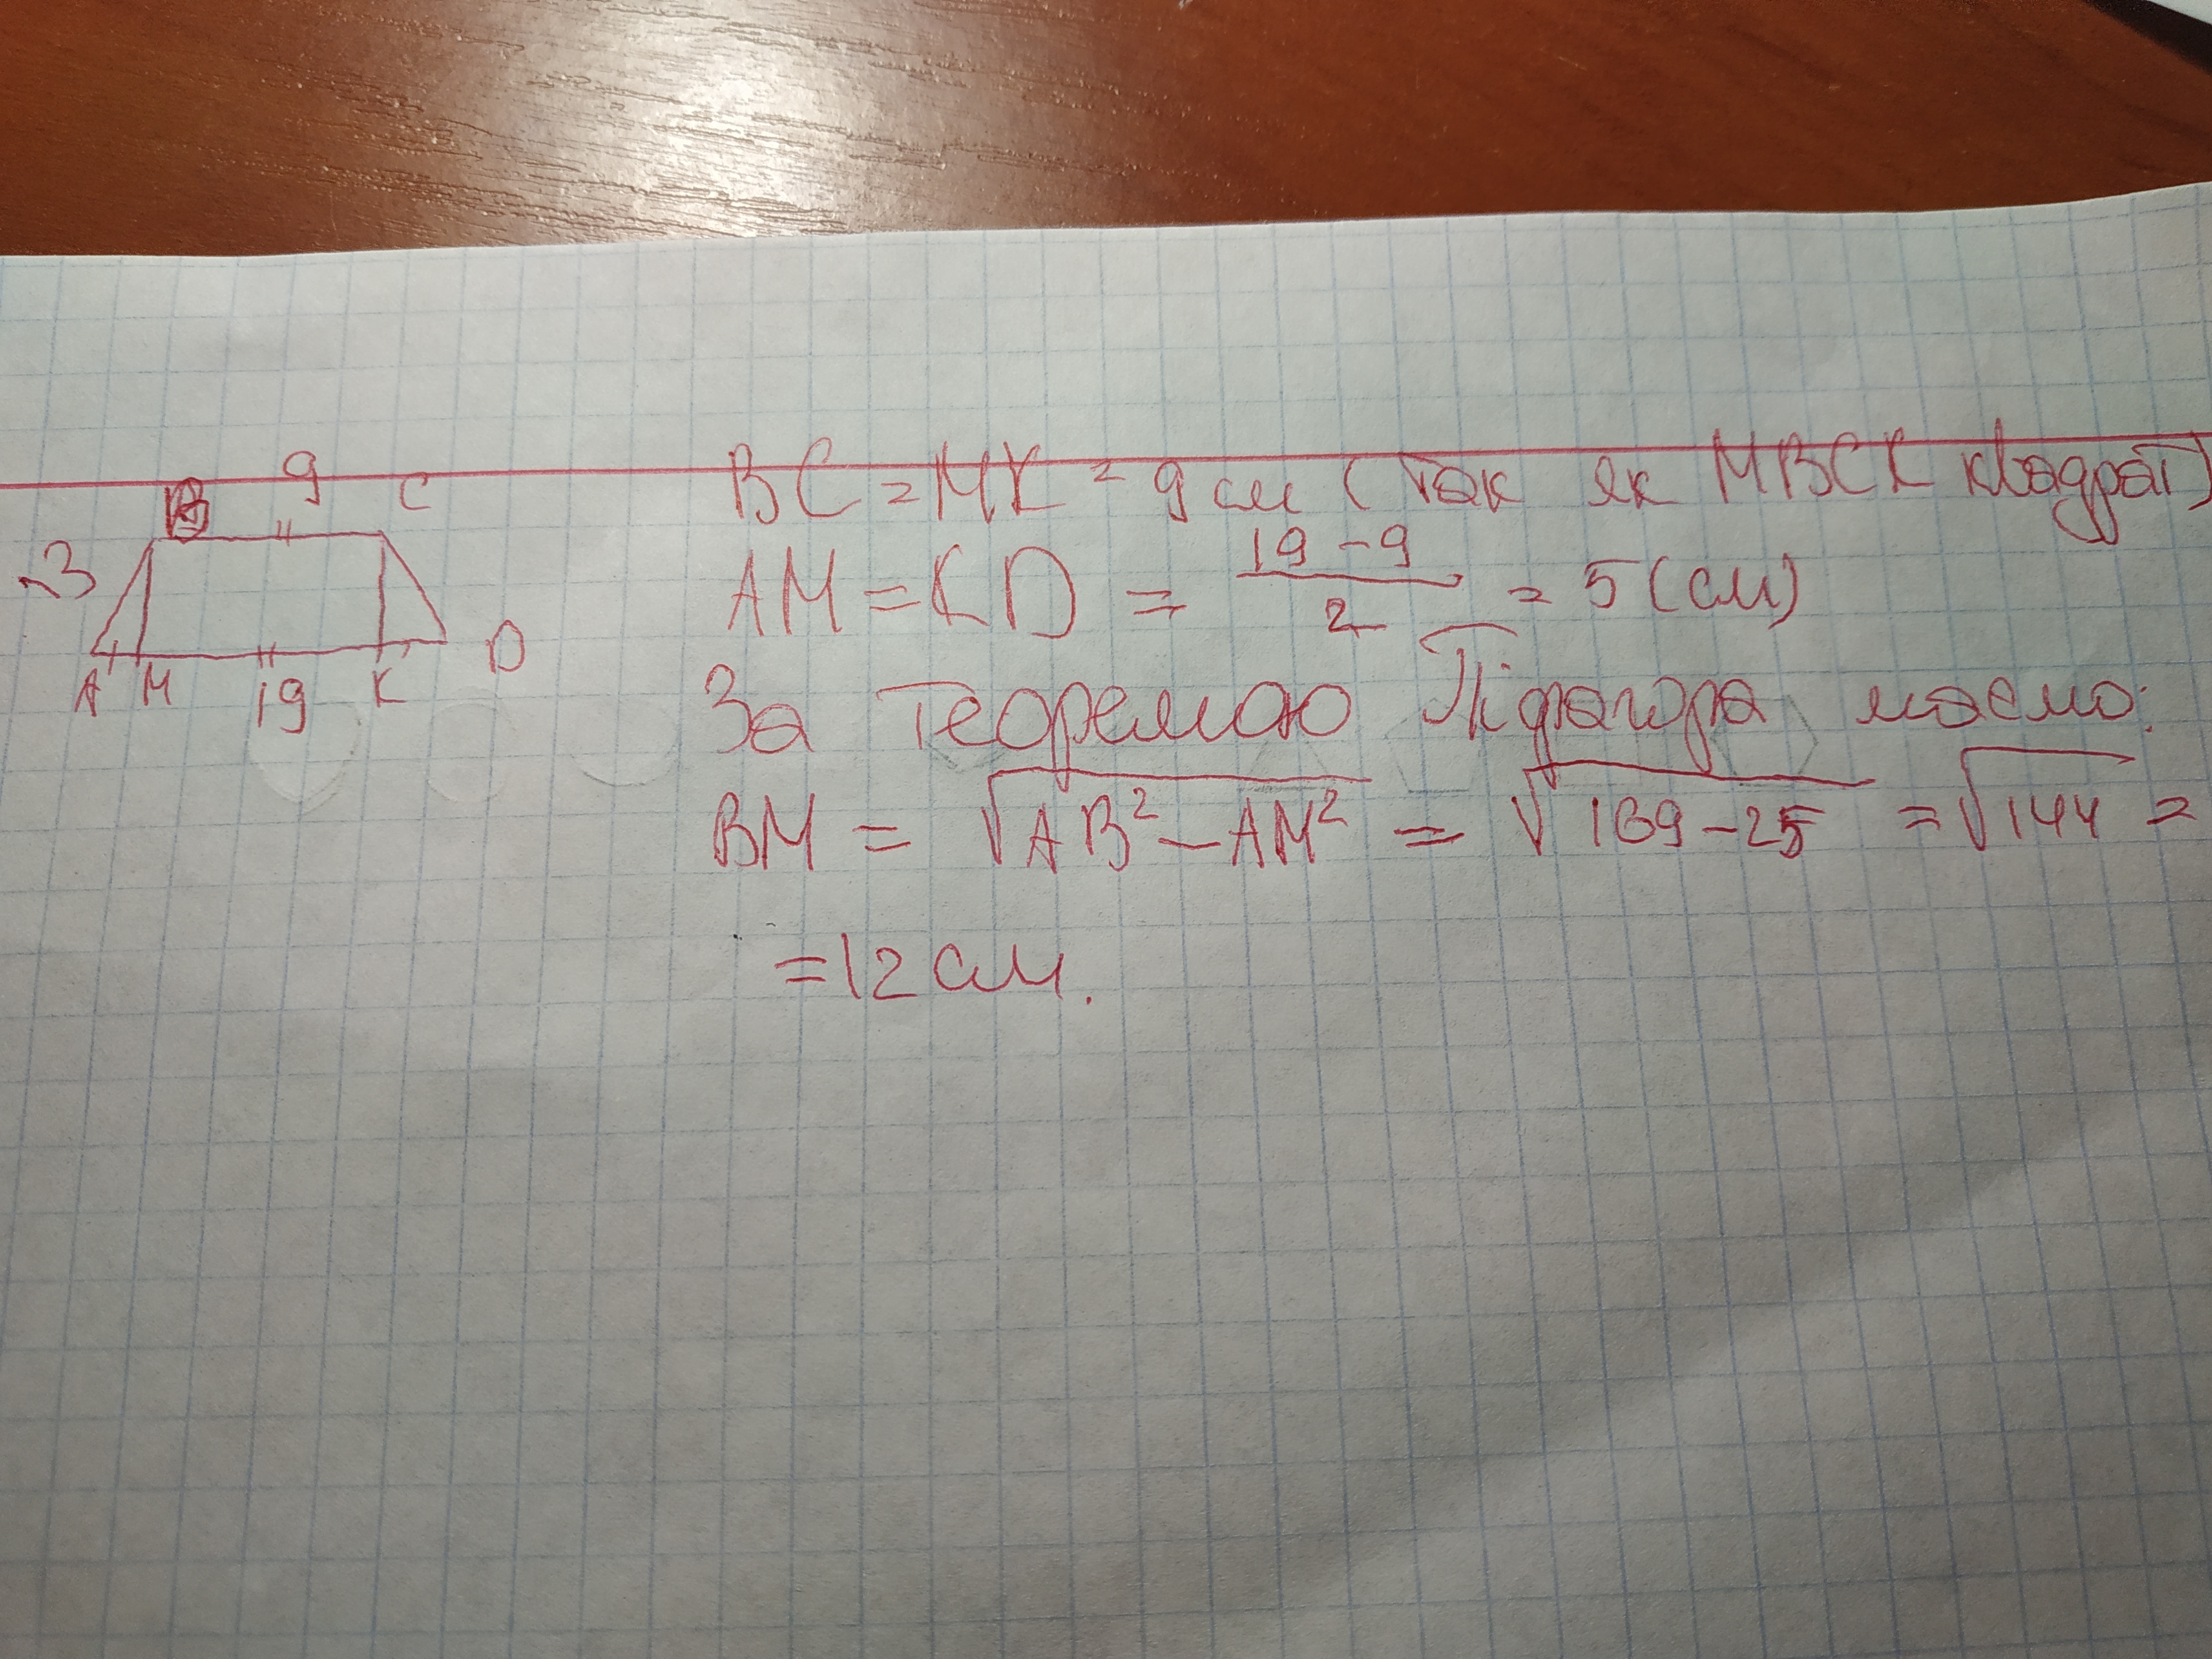 9
B C
13
A M 19 K D
BC = MK = 9 см (так як MBCK квадрат)
AM = KD = \frac{19-9}{2} = 5 (см)
За теоремаю Піфагора маємо:
BM = √(AB² - AM²) = √(169-25) = √144 =
= 12 см.